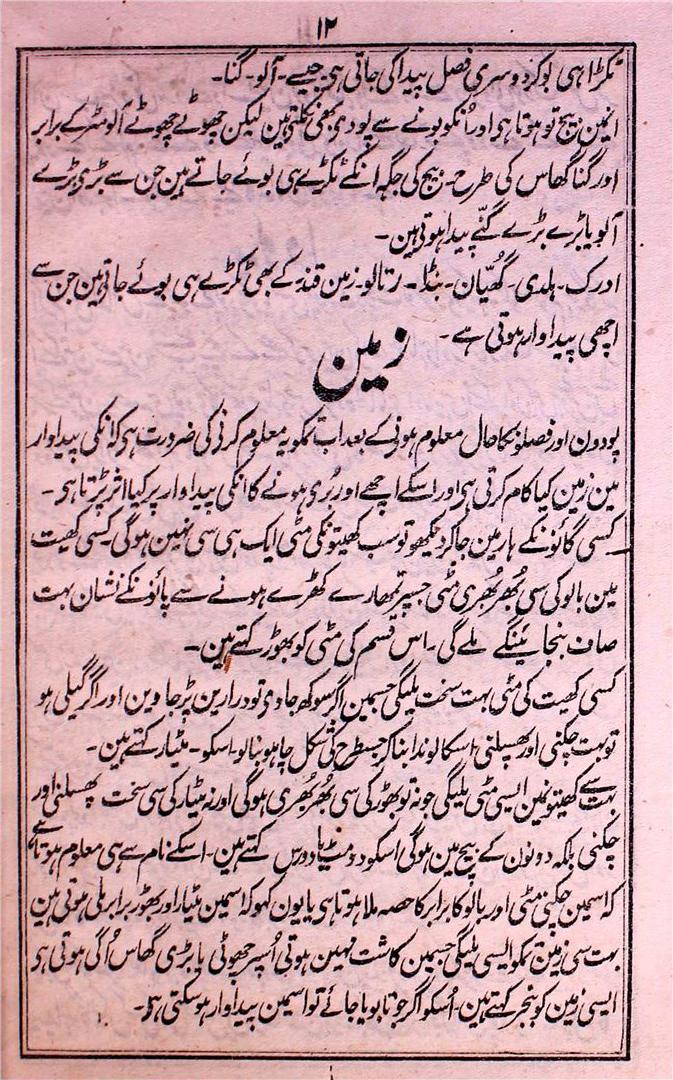 ۱۲
ٹکڑا ہی بوکر دوسری فصل پیدا کی جاتی ہی جیسے - آلو - گنا -
انمین بیج تو ہوتا ہی اور اُنکو بونے سے پودی بھی نکلتی ہین لیکن چھوٹے چھوٹے آلو مٹر کے برابر
اور گنا گھاس کی طرح - بیج کی جگہ انکے ٹکڑے ہی بوئے جاتے ہین جن سے بڑی بڑے
آلو یا بڑے بڑے گنّے پیدا ہوتی ہین -
ادرک - ہلدی - گھُیّان - بنڈا - رتالو - زمین قند کے بھی ٹکڑے ہی بوئے جاتی ہین جن سے
اچھی پیداوار ہوتی ہے -
زمین
پودون اور فصلونکا حال معلوم ہونی کے بعد اب تمکو یہ معلوم کرنی کی ضرورت ہی کہ انکی پیداوار
مین زمین کیا کام کرتی ہی اور اسکے اچھے اور بُری ہونے کا انکی پیداوار پر کیا اثر پڑتا ہی -
کسی گائونکے ہار مین جاکر دیکھو تو سب کھیتونکی مٹی ایک ہی سی نہین ہوگی - کسی کھیت
مین بالو کی سی بُھربُھری مٹی جسپر تمھارے کھڑے ہونے سے پائونکے نشان بہت
صاف بنجائینگے ملے گی - اس قسم کی مٹی کو بھوڑ کہتے ہین -
کسی کھیت کی مٹی بہت سخت ملیگی جسمین اگر سوکھ جاوی تو درارین پڑجاوین اور اگر گیلی ہو
تو بہت چکنی اور پھسلنی - اسکا لوندا بناکر جسطرح کی شکل چاہو بنالو - اسکو - مٹیار کہتے ہین -
بہت سے کھیتونمین ایسی مٹی ملیگی جو نہ تو بھوڑ کی سی بُھربُھری ہوگی اور نہ مٹیار کی سی سخت پھسلنی اور
چکنی بلکہ دونون کے بیچ مین ہوگی اسکو دومٹ یا دورس کہتے ہین - اسکے نام سے ہی معلوم ہوتا ہے
کہ اسمین چکنی مٹی اور بالو کا برابر کا حصہ ملا ہوتا ہی یا یون کہو کہ اسمین مٹیار اور بھوڑ برابر ملی ہوتی ہین
بہت سی زمین تمکو ایسی ملیگی جسمین کاشت نہین ہوتی اُسپر چھوٹی یا بڑی گھاس اُگی ہوتی ہی
ایسی زمین کو بنجر کہتے ہین - اُسکو اگر جوتا بویا جائے تو اسمین پیداوار ہوسکتی ہی -